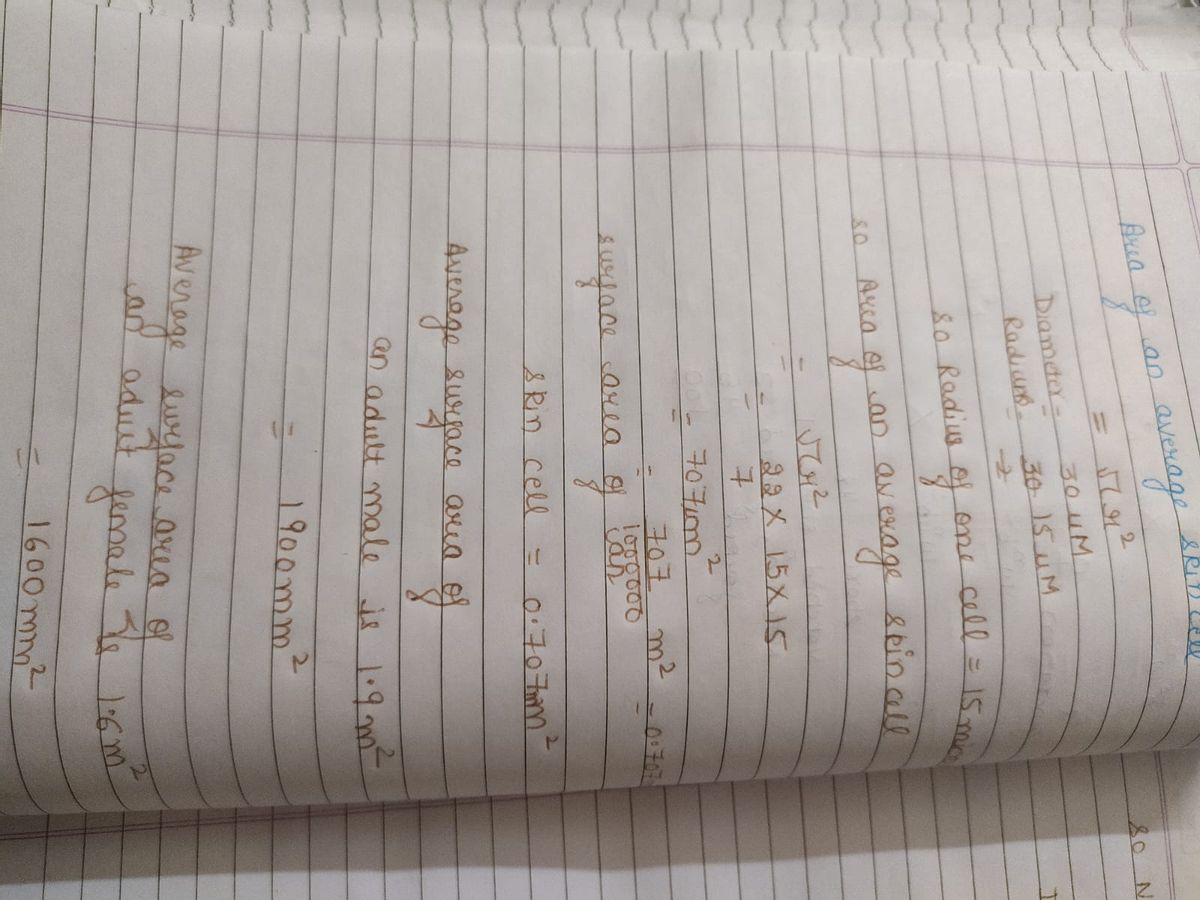 Area of an average skin cell
= πr²
Diameter - 30 µM
Radius - 30 15 µM
→
so Radius of one cell = 15 micr
so Area of an average skin cell
= πr²
= 22 × 15 × 15
7
= 707µm²
= 707 m² = 0.707
1000000
surface area of
skin cell = 0.707mm²
Average surface area of
an adult male is 1.9m²
= 1900mm²
Average surface area of
an adult female is 1.6m²
= 1600mm²
so N